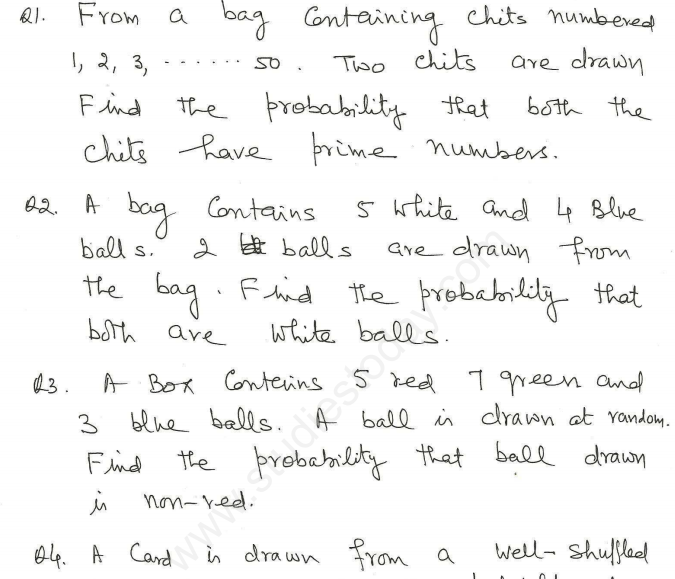 Q1. From a bag Containing chits numbered
1, 2, 3, ....... 50. Two chits are drawn
Find the probability that both the
chits have prime numbers.
Q2. A bag Contains 5 White and 4 Blue
balls. 2 balls are drawn from
the bag. Find the probability that
both are White balls.
Q3. A Box Contains 5 red 7 green and
3 blue balls. A ball is drawn at random.
Find the probability that ball drawn
is non-red.
Q4. A Card is drawn from a well-shuffled
www.studiestoday.com